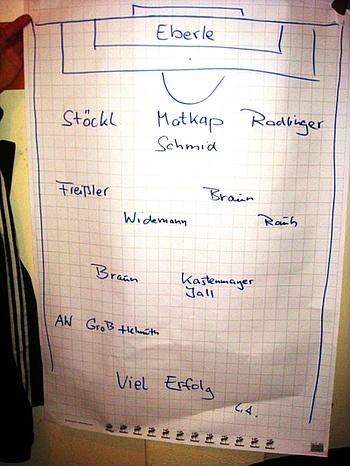 Eberle
Stöckl Motkap Radlinger
Schmid
Freißler Braun
Widemann Rauh
Braun Kastenmayer
Jall
AN Groß + Helmuth
Viel Erfolg